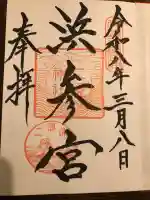 令和八年三月八日
浜参宮
奉拝